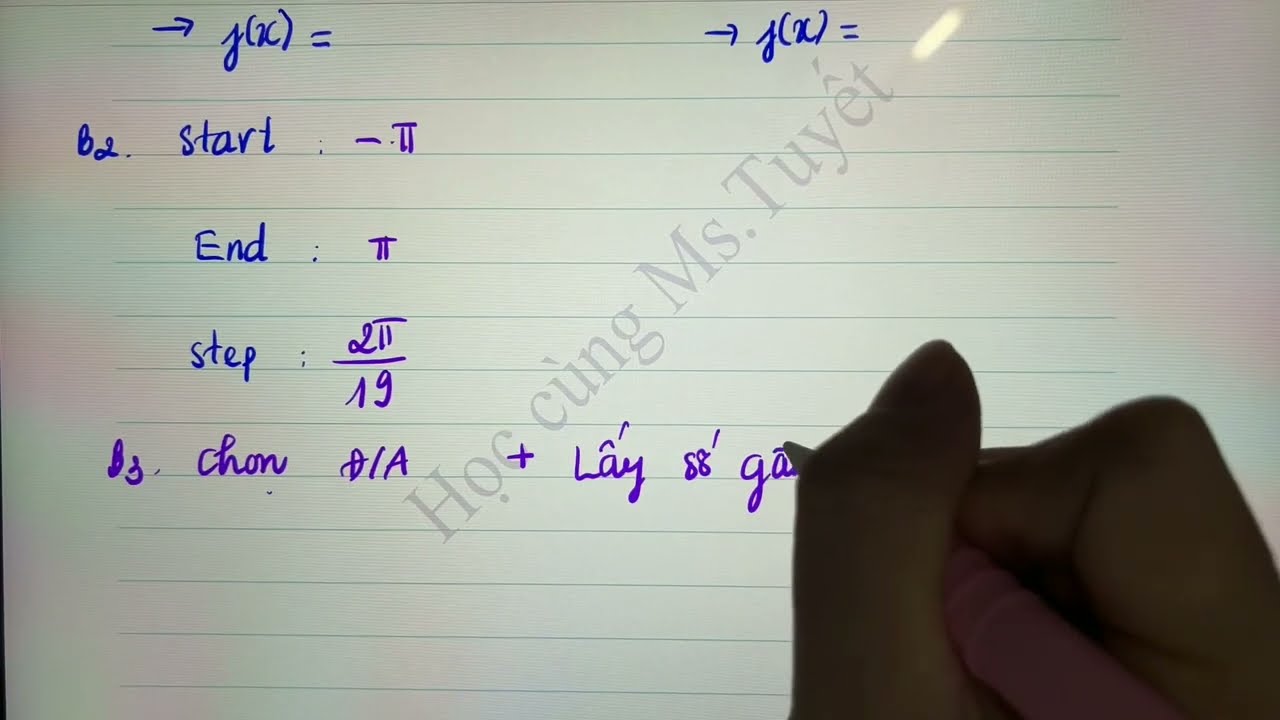 → f(x) = → f(x) =
B2. Start : -π
End : π
step : 2π/19
B3. Chọn Đ/A + Lấy số gầ
Học cùng Ms.Tuyết